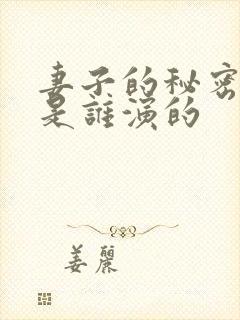 妻子的秘密
是誰演的
姜麗